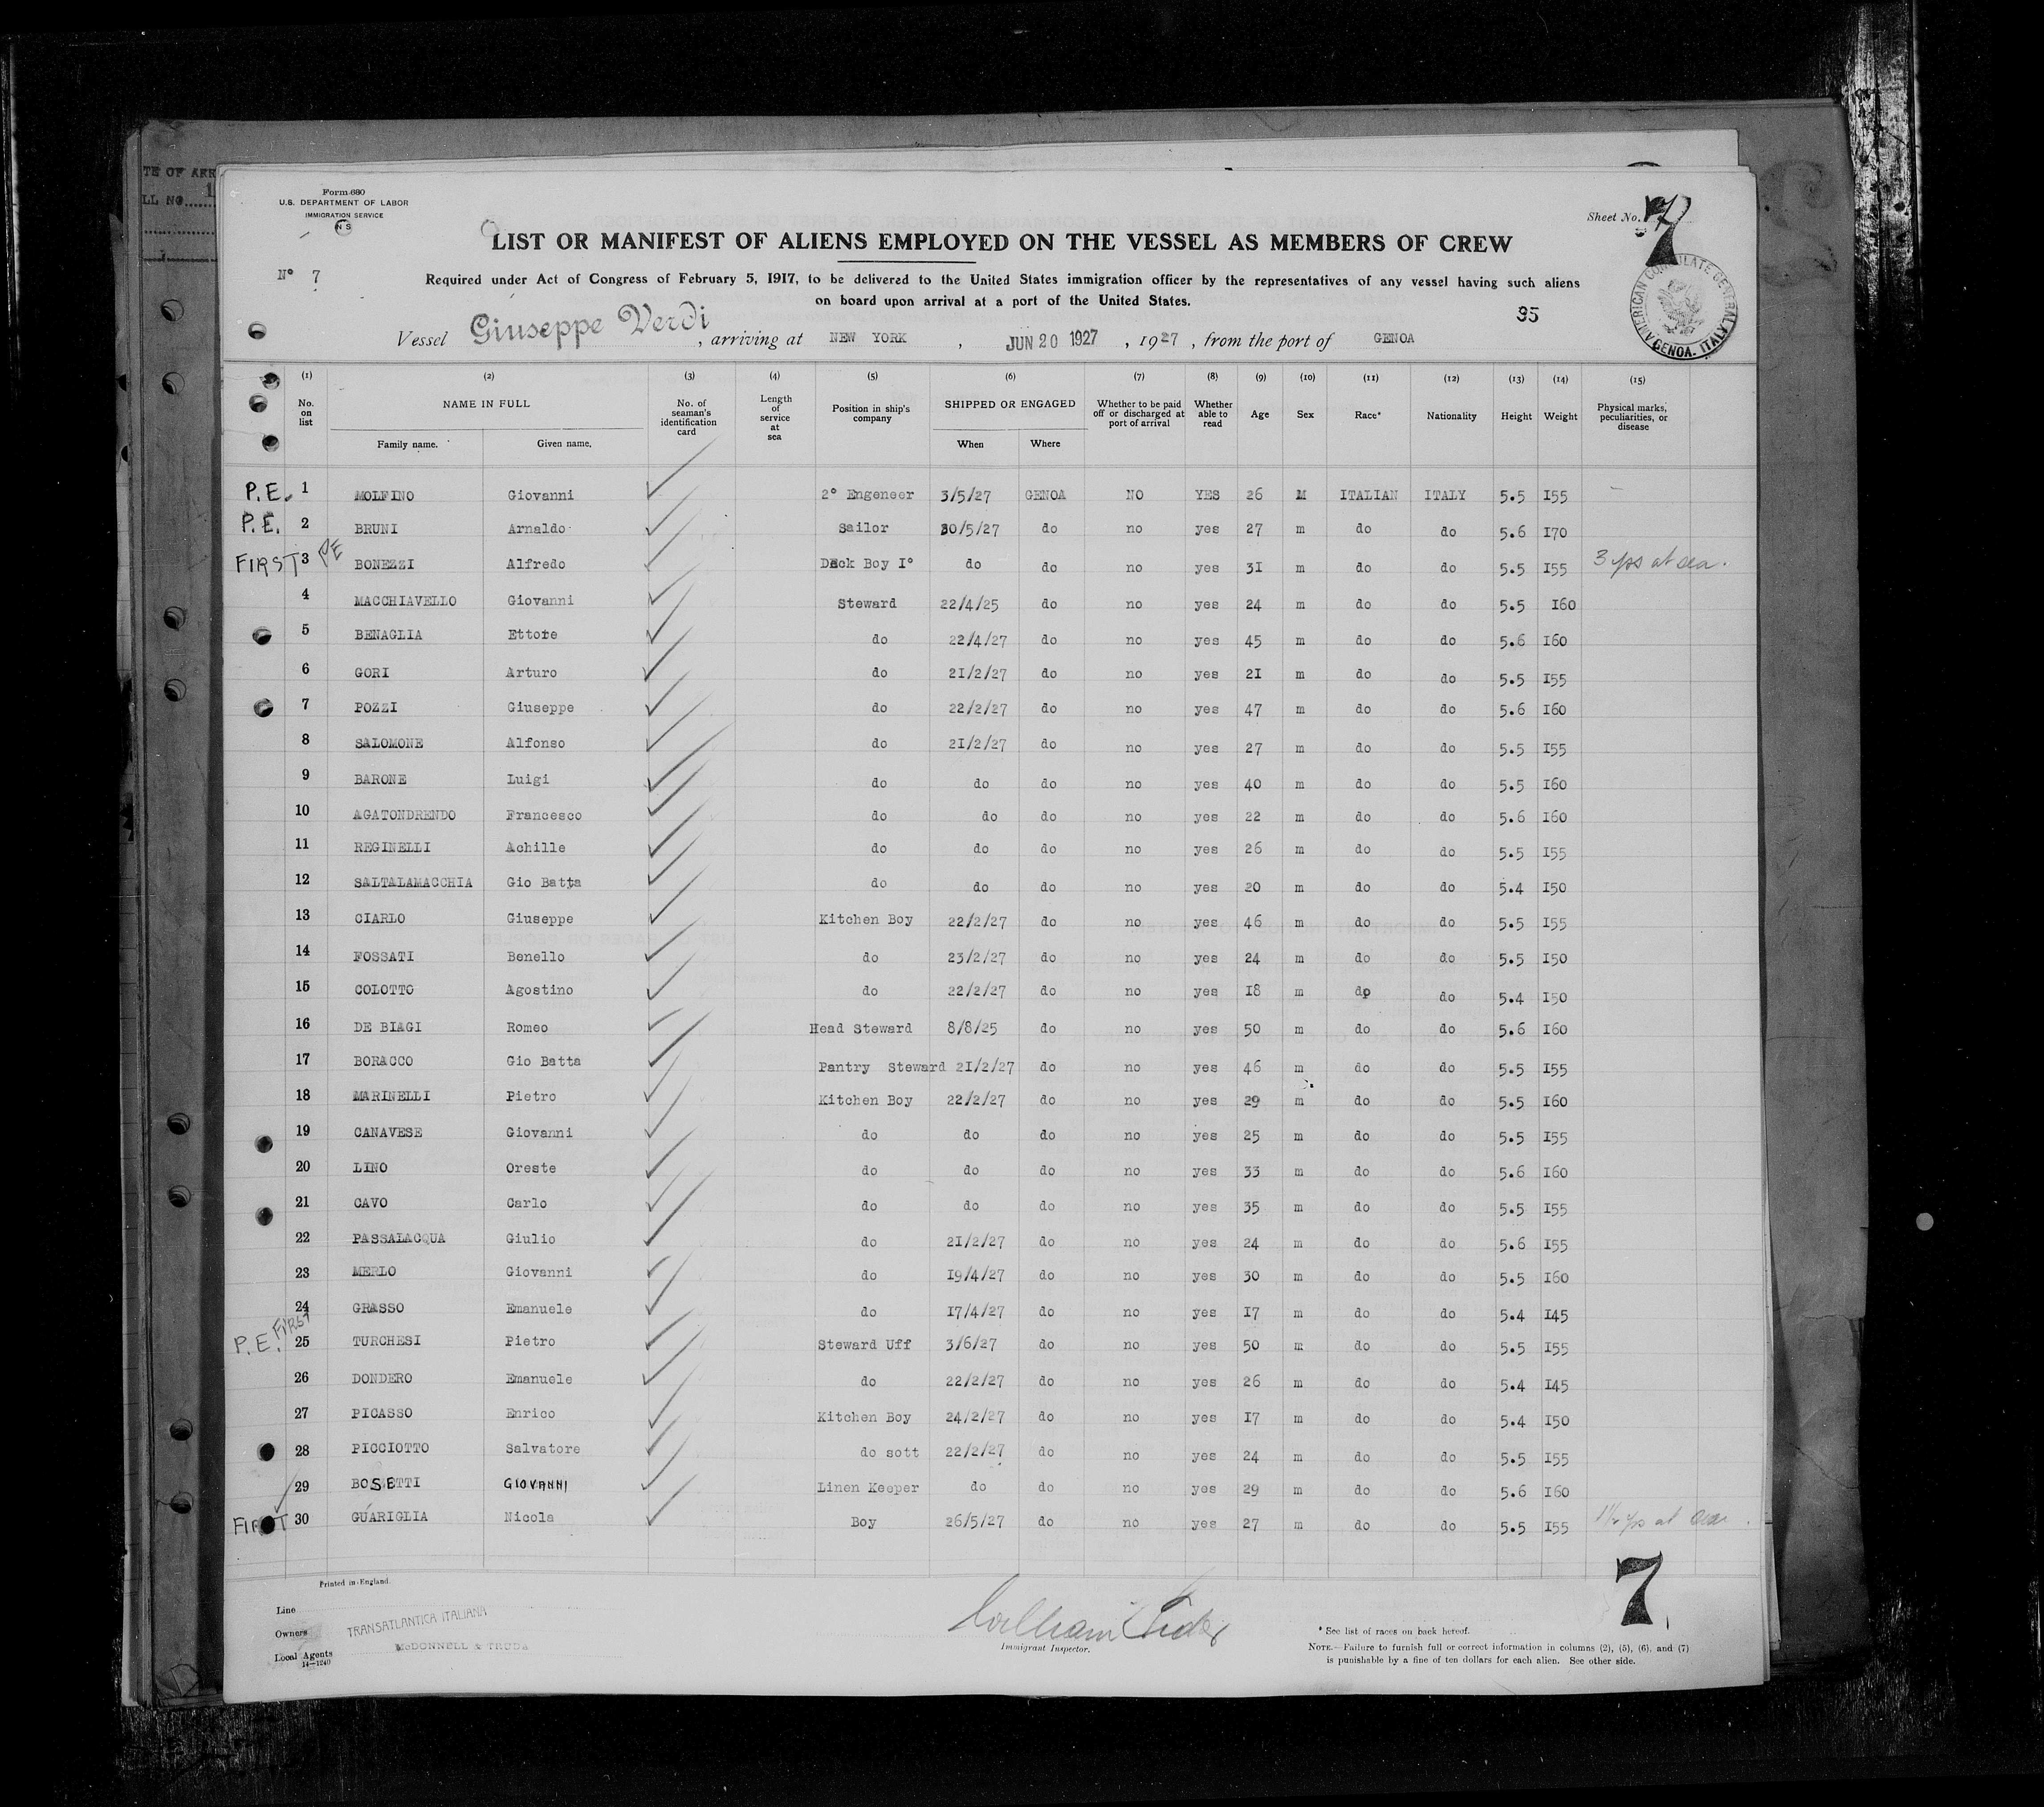 TE OF ARR
LL NO
Form 680
U.S. DEPARTMENT OF LABOR
IMMIGRATION SERVICE
N S
Sheet No. 7
LIST OR MANIFEST OF ALIENS EMPLOYED ON THE VESSEL AS MEMBERS OF CREW
N° 7
Required under Act of Congress of February 5, 1917, to be delivered to the United States immigration officer by the representatives of any vessel having such aliens
on board upon arrival at a port of the United States.
AMERICAN CONSULATE GENERAL GENOA. ITALY
35
Vessel Giuseppe Verdi, arriving at NEW YORK, JUN 20 1927, 1927, from the port of GENOA
(1) (2) (3) (4) (5) (6) (7) (8) (9) (10) (11) (12) (13) (14) (15)
No. on list NAME IN FULL Family name. Given name. No. of seaman's identification card Length of service at sea Position in ship's company SHIPPED OR ENGAGED When Where Whether to be paid off or discharged at port of arrival Whether able to read Age Sex Race* Nationality Height Weight Physical marks, peculiarities, or disease
P.E. 1 MOLFINO Giovanni 2° Engeneer 3/5/27 GENOA NO YES 26 M ITALIAN ITALY 5.5 I55
P.E. 2 BRUNI Arnaldo Sailor 30/5/27 do no yes 27 m do do 5.6 I70
FIRST PE 3 BONEZZI Alfredo Deck Boy I° do do no yes 31 m do do 5.5 I55 3 yrs at sea.
4 MACCHIAVELLO Giovanni Steward 22/4/25 do no yes 24 m do do 5.5 I60
5 BENAGLIA Ettore do 22/4/27 do no yes 45 m do do 5.6 I60
6 GORI Arturo do 2I/2/27 do no yes 2I m do do 5.5 I55
7 POZZI Giuseppe do 22/2/27 do no yes 47 m do do 5.6 I60
8 SALOMONE Alfonso do 2I/2/27 do no yes 27 m do do 5.5 I55
9 BARONE Luigi do do do no yes 40 m do do 5.5 I60
10 AGATONDRENDO Francesco do do do no yes 22 m do do 5.6 I60
11 REGINELLI Achille do do do no yes 26 m do do 5.5 I55
12 SALTALAMACCHIA Gio Batta do do do no yes 20 m do do 5.4 I50
13 CIARLO Giuseppe Kitchen Boy 22/2/27 do no yes 46 m do do 5.5 I55
14 FOSSATI Benello do 23/2/27 do no yes 24 m do do 5.5 I50
15 COLOTTO Agostino do 22/2/27 do no yes I8 m do do 5.4 I50
16 DE BIAGI Romeo Head Steward 8/8/25 do no yes 50 m do do 5.6 I60
17 BORACCO Gio Batta Pantry Steward 2I/2/27 do no yes 46 m do do 5.5 I55
18 MARINELLI Pietro Kitchen Boy 22/2/27 do no yes 29 m do do 5.5 I60
19 CANAVESE Giovanni do do do no yes 25 m do do 5.5 I55
20 LINO Oreste do do do no yes 33 m do do 5.6 I60
21 CAVO Carlo do do do no yes 35 m do do 5.5 I55
22 PASSALACQUA Giulio do 2I/2/27 do no yes 24 m do do 5.6 I55
23 MERLO Giovanni do I9/4/27 do no yes 30 m do do 5.5 I60
24 GRASSO Emanuele do I7/4/27 do no yes I7 m do do 5.4 I45
P.E. FIRST 25 TURCHESI Pietro Steward Uff 3/6/27 do no yes 50 m do do 5.5 I55
26 DONDERO Emanuele do 22/2/27 do no yes 26 m do do 5.4 I45
27 PICASSO Enrico Kitchen Boy 24/2/27 do no yes I7 m do do 5.4 I50
28 PICCIOTTO Salvatore do sott 22/2/27 do no yes 24 m do do 5.5 I55
29 BOSETTI GIOVANNI Linen Keeper do do no yes 29 m do do 5.6 I60
FIRST 30 GUARIGLIA Nicola Boy 26/5/27 do no yes 27 m do do 5.5 I55 1½ yrs at sea.
Printed in England.
7
Line
Owners TRANSATLANTICA ITALIANA
Local Agents McDONNELL & TRUDA
14—1240
William
Immigrant Inspector.
* See list of races on back hereof.
NOTE.—Failure to furnish full or correct information in columns (2), (5), (6), and (7)
is punishable by a fine of ten dollars for each alien. See other side.